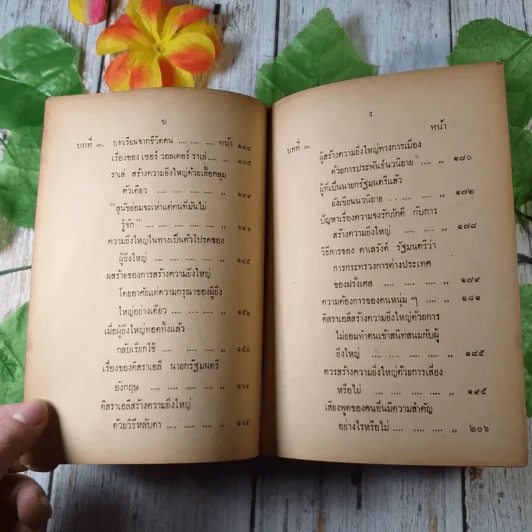 ฆ
บทที่ ๓. บทเรียนจากชีวิตคน .... .... .... หน้า ๑๓๔
เรื่องของ เซอร์ วอลเตอร์ ราเล่ .... ,, ๑๓๕
ราเล่ สร้างความยิ่งใหญ่ด้วยเสื้อคลุม
ตัวเดียว .... .... .... .... ,, ๑๓๙
"สุนัขย่อมจะเห่าแต่คนที่มันไม่
รู้จัก" .... .... .... .... ,, ๑๔๑
ความยิ่งใหญ่ในทางเป็นตัวโปรดของ
ผู้ยิ่งใหญ่ .... .... .... .... ,, ๑๔๕
ผลร้ายของการสร้างความยิ่งใหญ่
โดยอาศัยแต่ความกรุณาของผู้ยิ่ง
ใหญ่อย่างเดียว .... .... .... ,, ๑๕๒
เมื่อผู้ยิ่งใหญ่ทอดทิ้งแล้ว
กลับเรียกใช้ .... .... .... ,,
เรื่องของดิสราเอลี นายกรัฐมนตรี
อังกฤษ .... .... .... .... ,, ๑๖๑
ดิสราเอลีสร้างความยิ่งใหญ่
ด้วยวิธีหลับตา .... .... .... ,, ๑๖๕
ง
หน้า
บทที่ ๓. ผู้สร้างความยิ่งใหญ่ทางการเมือง
ด้วยการประพันธ์นวนิยาย .... ,, ๑๗๐
ผู้ที่เป็นนายกรัฐมนตรีแล้ว
ยังเขียนนวนิยาย .... .... .... ,, ๑๗๒
ปัญหาเรื่องความจงรักภักดี กับการ
สร้างความยิ่งใหญ่ .... .... ,, ๑๗๘
วิธีการของ ตาเลรังด์ รัฐมนตรีว่า
การกระทรวงการต่างประเทศ
ของฝรั่งเศส .... .... .... ,, ๑๗๙
ความต้องการของคนหนุ่ม ๆ .... ,, ๑๘๑
ดิสราเอลีสร้างความยิ่งใหญ่ด้วยการ
ไม่ยอมทำตนเข้าสนิทสนมกับผู้
ยิ่งใหญ่ .... .... .... .... ,, ๑๘๕
ควรสร้างความยิ่งใหญ่ด้วยการเสี่ยง
หรือไม่ .... .... .... .... ,, ๑๙๕
เสียงพูดของคนอื่นมีความสำคัญ
อย่างไรหรือไม่ .... .... .... ,, ๒๐๖